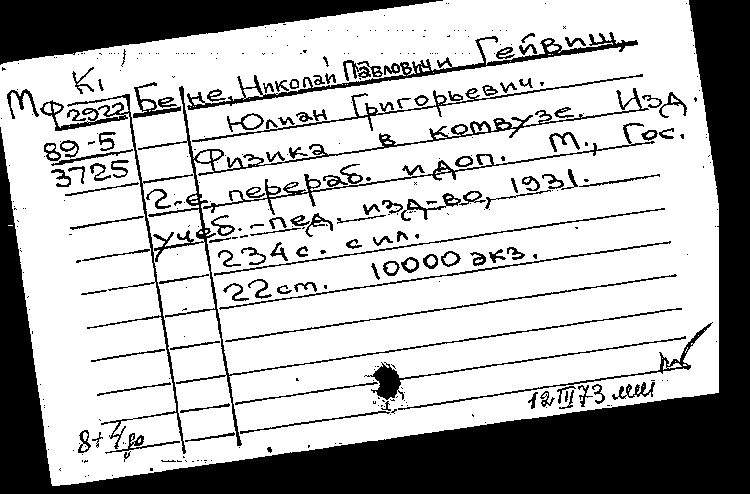 К1
МФ 2922 Бе не, Николай Павлович и Гейвиш,
89-5 Юлиан Григорьевич.
3725 Физика в комвузе. Изд.
2-е, перераб. и доп. М., Гос.
учеб.-пед. изд-во, 1931.
234 с. с ил.
22 ст. 10000 экз.
12 III 73
8+4